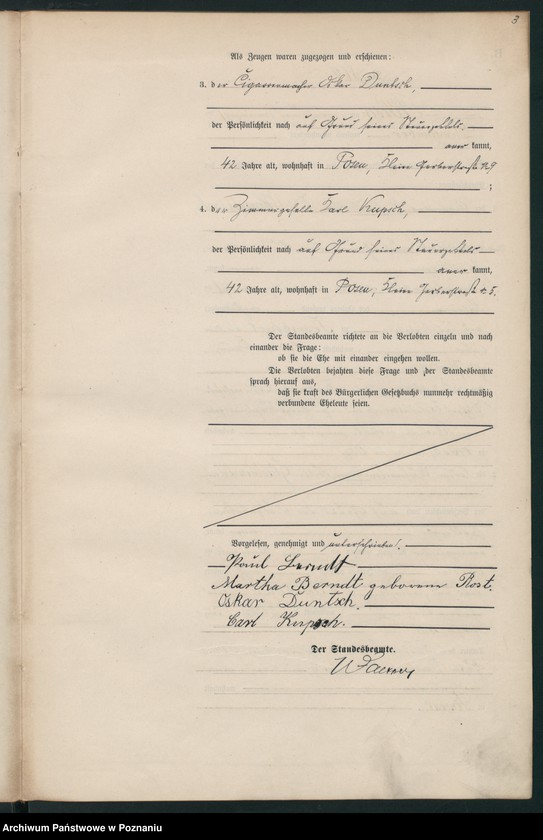 3
Als Zeugen waren zugezogen und erschienen:
3. der Cigarrenmacher Oskar Duntsch,
der Persönlichkeit nach auf Grund seines Steuerzettels
anerkannt,
42 Jahre alt, wohnhaft in Posen, Kleine Gerberstraße N. 9
;
4. der Zimmergeselle Karl Kupsch,
der Persönlichkeit nach auf Grund seines Steuerzettels
anerkannt,
42 Jahre alt, wohnhaft in Posen, Kleine Gerberstraße 5.
Der Standesbeamte richtete an die Verlobten einzeln und nach
einander die Frage:
ob sie die Ehe mit einander eingehen wollen.
Die Verlobten bejahten diese Frage und der Standesbeamte
sprach hierauf aus,
daß sie kraft des Bürgerlichen Gesetzbuchs nunmehr rechtmäßig
verbundene Eheleute seien.
Vorgelesen, genehmigt und unterschrieben.
Paul Berndt
Martha Berndt geborene Rost.
Oskar Duntsch.
Carl Kupsch.
Der Standesbeamte.
Archiwum Państwowe w Poznaniu